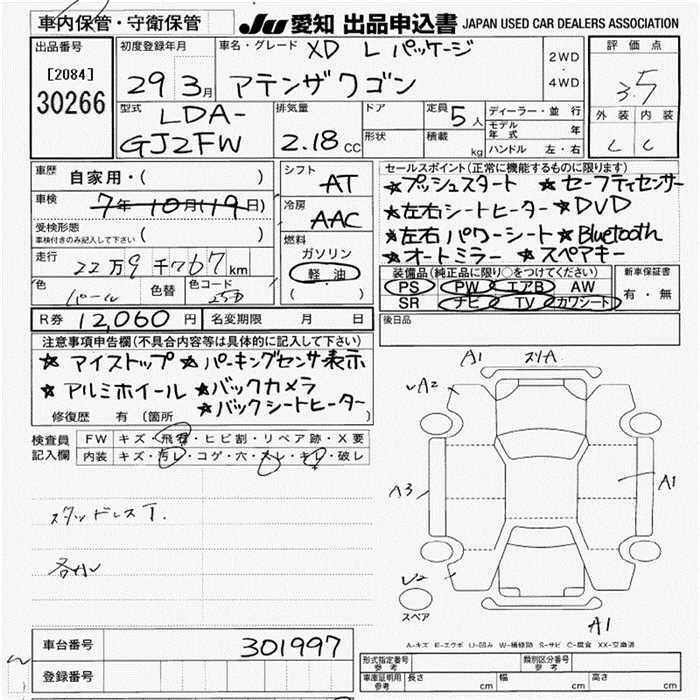 車内保管・守衛保管
JU 愛知 出品申込書 JAPAN USED CAR DEALERS ASSOCIATION
出品番号
[2084]
30266
初度登録年月
29年 3月
車名・グレード XD L パッケージ
アテンザワゴン
2WD
・
4WD
評価点
3.5
外装 内装
C C
型式 LDA-
GJ2FW
排気量
2.18 CC
ドア
形状
定員 5人
積載 kg
ディーラー・並行
モデル年式 年
ハンドル 左・右
車歴 自家用・( )
車検 7年10月(19日)
受検形態
車検付きのみ記入して下さい ( )
走行 22万9千767km
色 パール 色替 色コード 25D
シフト AT
冷房 AAC
燃料
ガソリン
軽油
( ・ )
セールスポイント(正常に機能するものに限ります)
★プッシュスタート ★セーフティセンサー
★左右シートヒーター ★DVD
★左右パワーシート ★Bluetooth
★オートミラー ★スペアキー
装備品(純正品に限り○をつけてください)
PS PW エアB AW
SR ナビ TV カワシート
新車保証書
有・無
R券 12,060円 名変期限 月 日
後日品
注意事項申告欄(不具合内容等は具体的に記入して下さい)
★アイストップ ★パーキングセンサー表示
★アルミホイール ★バックカメラ
★バックシートヒーター
修復歴 有 〔箇所 〕
検査員記入欄
FW キズ・飛石・ヒビ割・リペア跡・X要
内装 キズ・汚レ・コゲ・穴・スレ・キレ・破レ
スタッドレスT.
各カレ
A1 スリA
A2
A3
A1
U2
スペア
A1
A-キズ E-エクボ U-凹み W-補修跡 S-サビ C-腐食 XX-交換済
車台番号 301997
登録番号
形式指定番号 参考
類別区分番号 参考
車庫証明用 参考 長さ cm 幅 cm 高さ cm